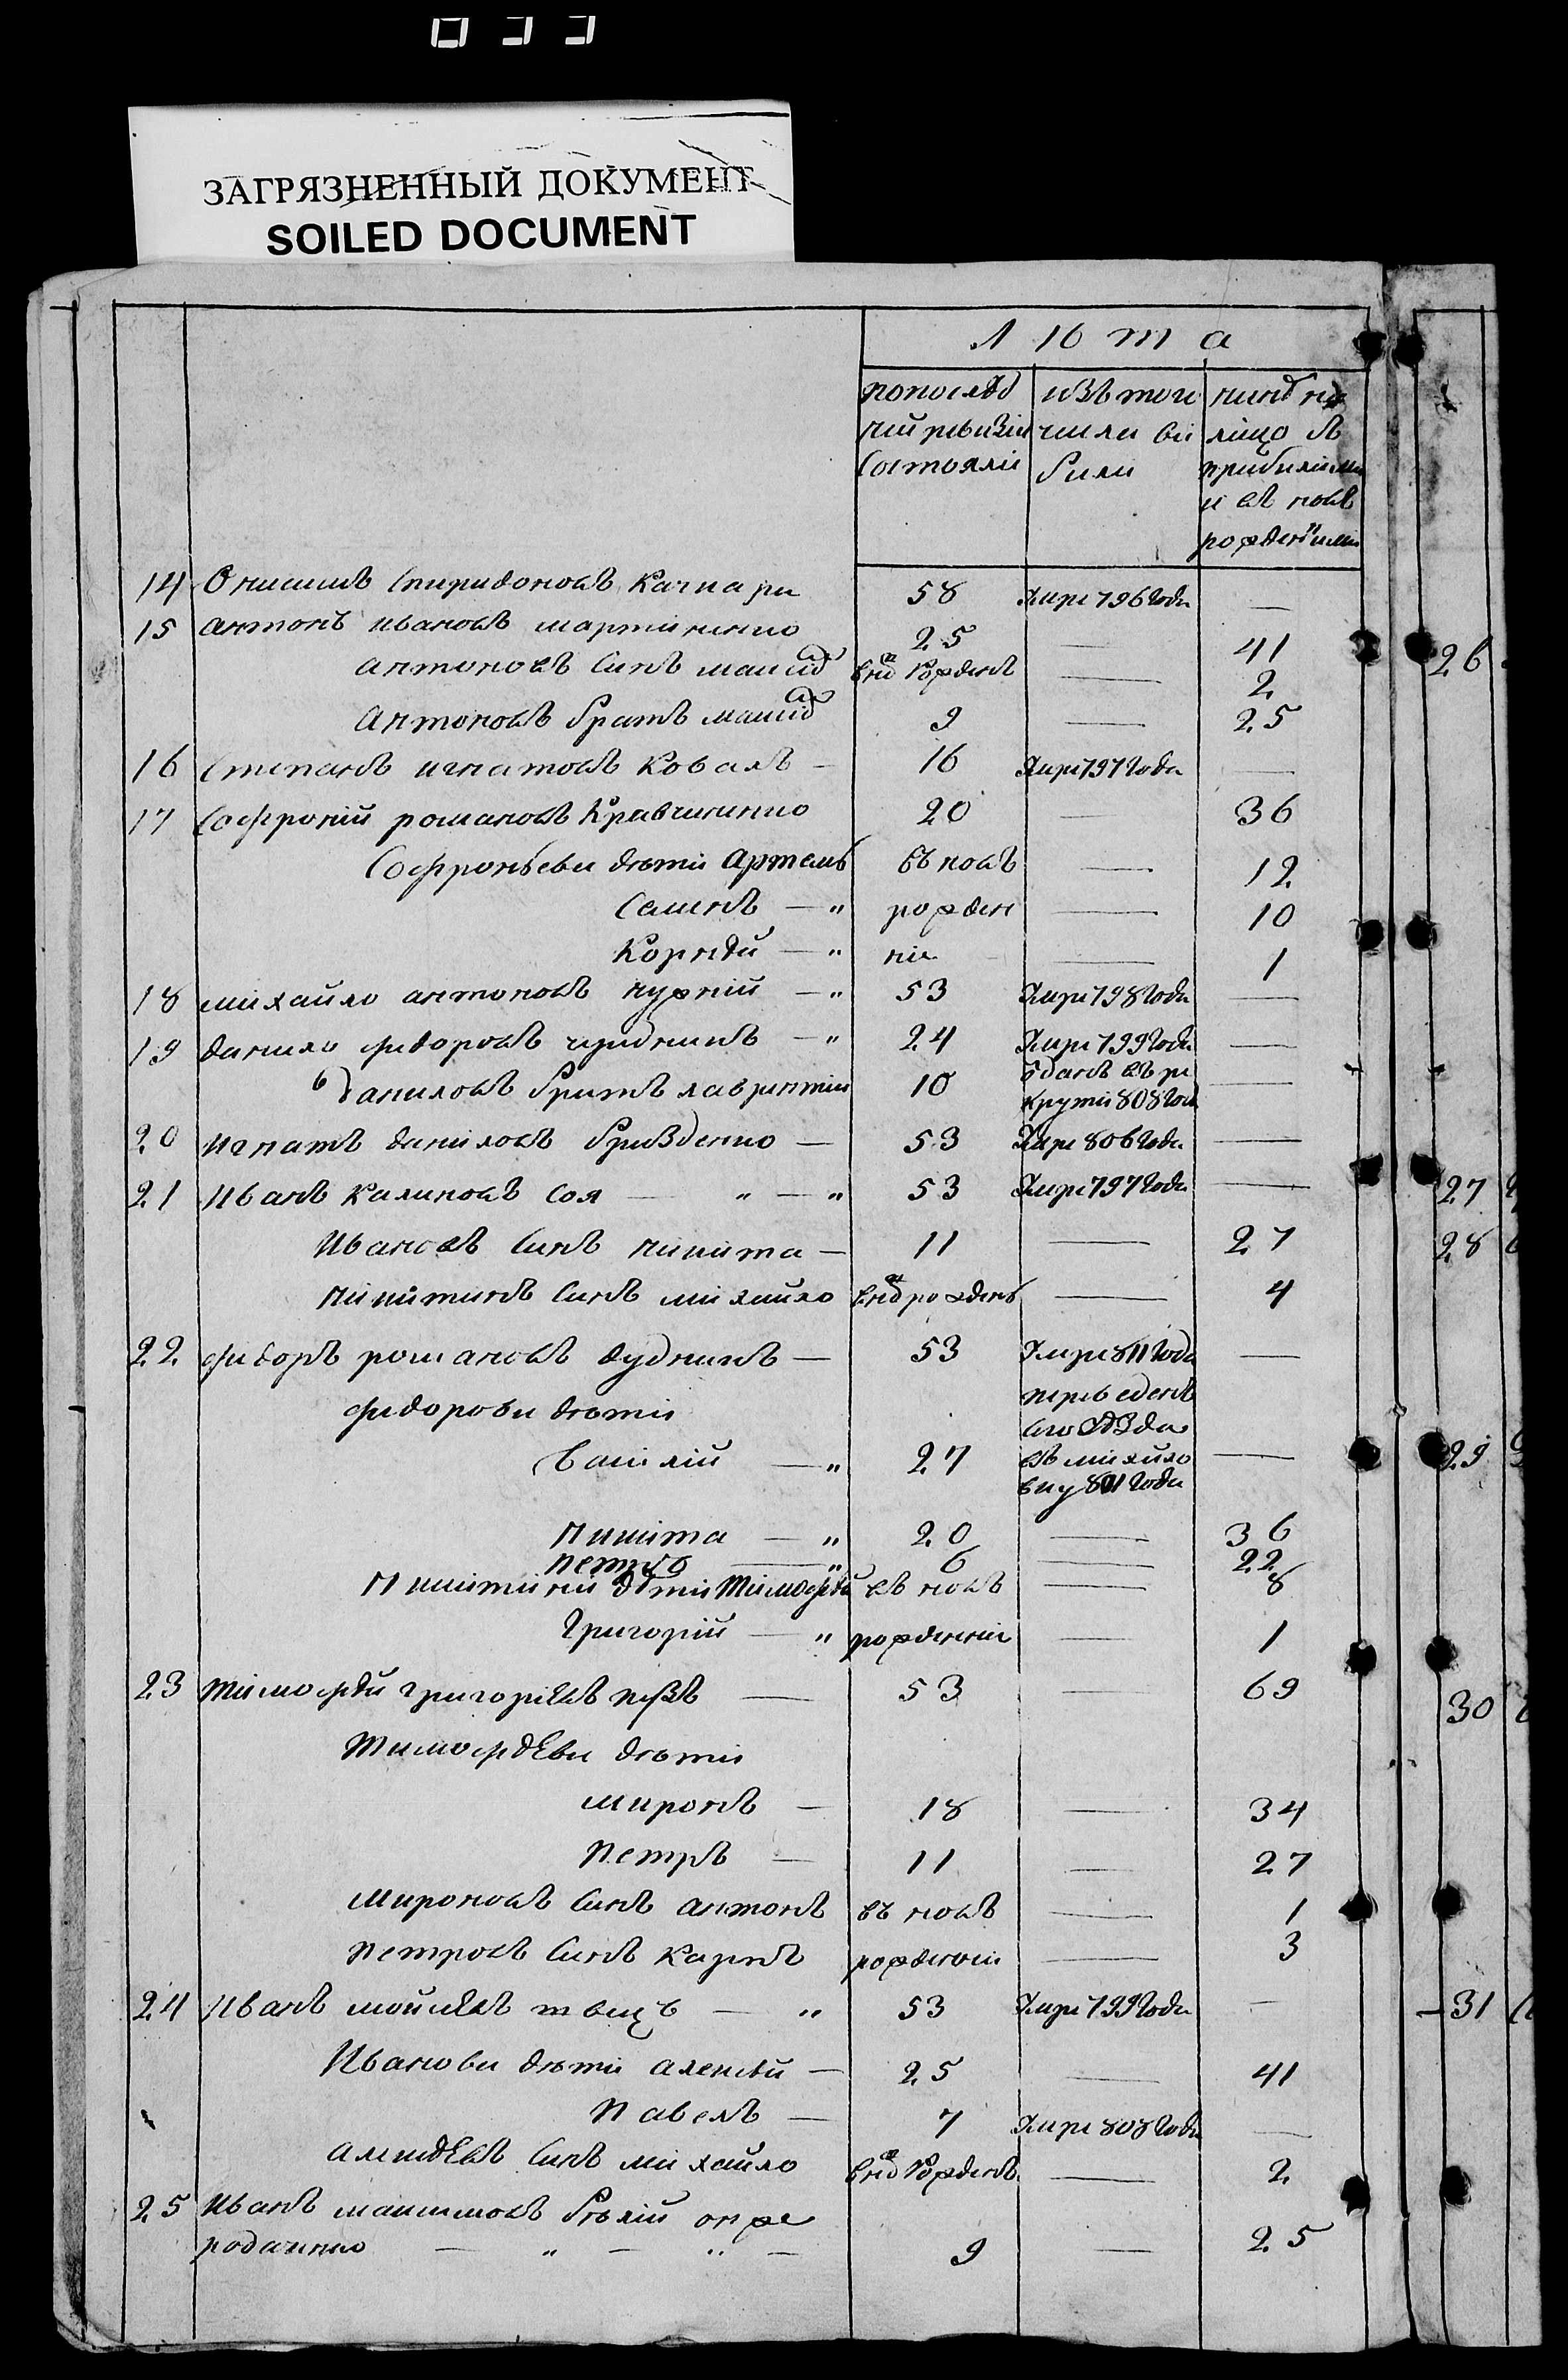 ЗАГРЯЗНЕННЫЙ ДОКУМЕНТ
SOILED DOCUMENT
Лѣта
попослѣд изъ того нинѣ на
ней ревизіи числа ви лицо съ
состояли били прибилими
и въ новѣ
рожденними
14 Онисимъ Спиридоновъ Качкара 58 умре 796 года —
15 антонъ ивановъ мартиненко 25 — 41
антоновъ синъ внов рожденъ — 2
антоновъ братъ 9 — 25
16 Степанъ игнатовъ Коваль — 16 умре 797 года —
17 Софроній романовъ Кравчиненко 20 — 36
Софроньеви дѣти Артемъ въ новѣ — 12
Семенъ — " рожден — 10
Корнѣй — " ніе — 1
18 михайло антоновъ нужній — " 53 умре 798 года —
19 данило федоровъ чуднинъ — " 24 умре 799 года —
даниловъ братъ лаврентій 10 одданъ въ ре —
круты 808 года
20 игнатъ даниловъ Груздемко — 53 умре 806 года —
21 Иванъ Калиновъ Соя — " — " 53 умре 797 года —
Ивановъ синъ никита — 11 — 27
никитинъ синъ михайло внов рожденъ — 4
22 федоръ романовъ дудникъ — 53 умре 811 года —
федорови дѣти переведенъ
сего уѣзда
Василій — " 27 въ михайло —
вку 801 года
Никита — " 20 — 36
петро — " 6 — 22
Никитини дѣти Тимофѣй въ новѣ — 8
Григорій — " рожденніе — 1
23 тимофѣй григоріевъ — 53 — 69
Тимофѣеви дѣти
миронъ — 18 — 34
Петръ — 11 — 27
мироновъ синъ антонъ въ новѣ — 1
петровъ синъ карпъ рожденніи — 3
24 Иванъ моисѣевъ швецъ — " 53 умре 799 года —
Иванови дѣти алексѣй — 25 — 41
Павелъ — 7 умре 808 года —
алексѣевъ синъ михайло внов рожденъ — 2
25 Иванъ максимовъ Бѣлій онже
родаченко — " — " — 9 — 25
26
27
28
29
30
31